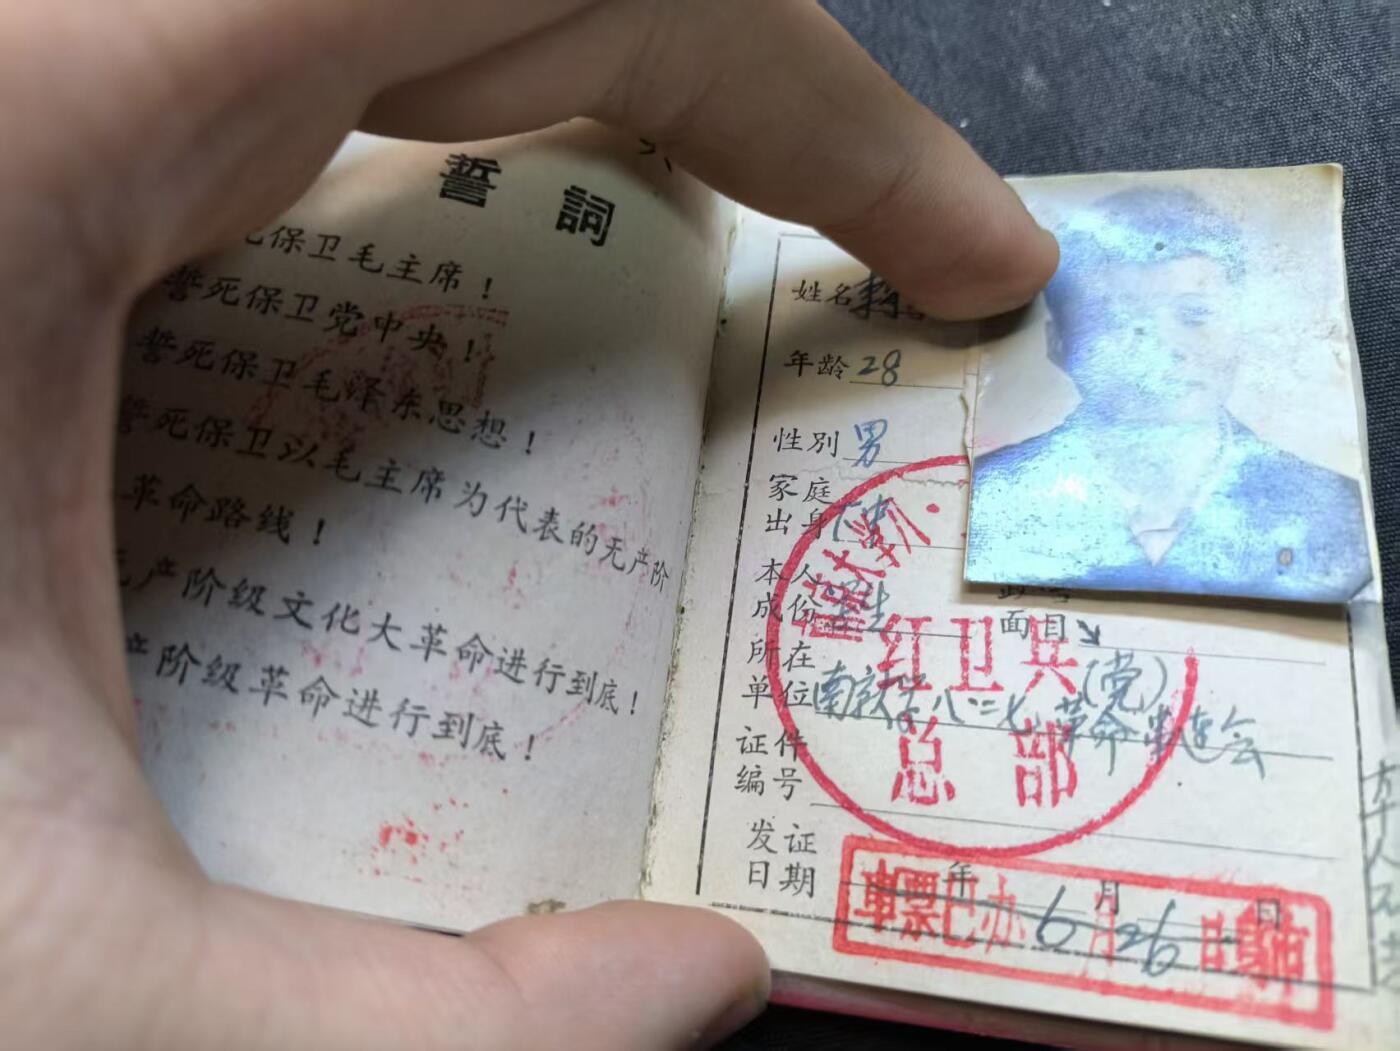 誓詞
死保卫毛主席！
誓死保卫党中央！
誓死保卫毛泽东思想！
誓死保卫以毛主席为代表的无产阶
革命路线！
产阶级文化大革命进行到底！
产阶级革命进行到底！
姓名
年龄 28
性别 男
家庭
出身
本人
成份
面目
所在
单位 南京 八·二七 革命串连会
(党)
证件
编号
发证
日期 年 月 日
红卫兵
总部
车票已办 6月26日